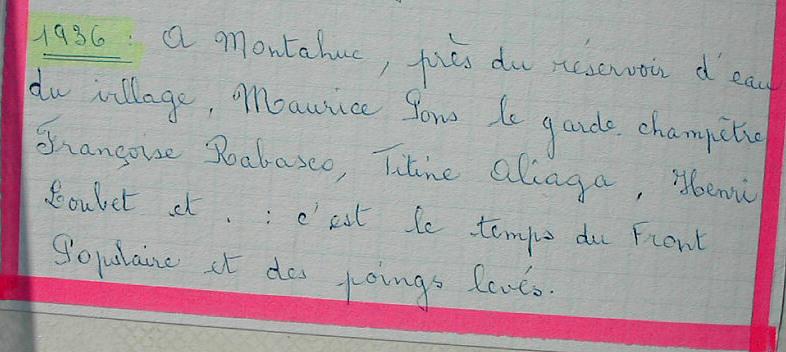 1936 : A Montahuc, près du réservoir d'eau
du village, Maurice Pons le garde champêtre
Françoise Rabasco, Titine Aliaga, Henri
Loubet et . : c'est le temps du Front
Populaire et des poings levés.